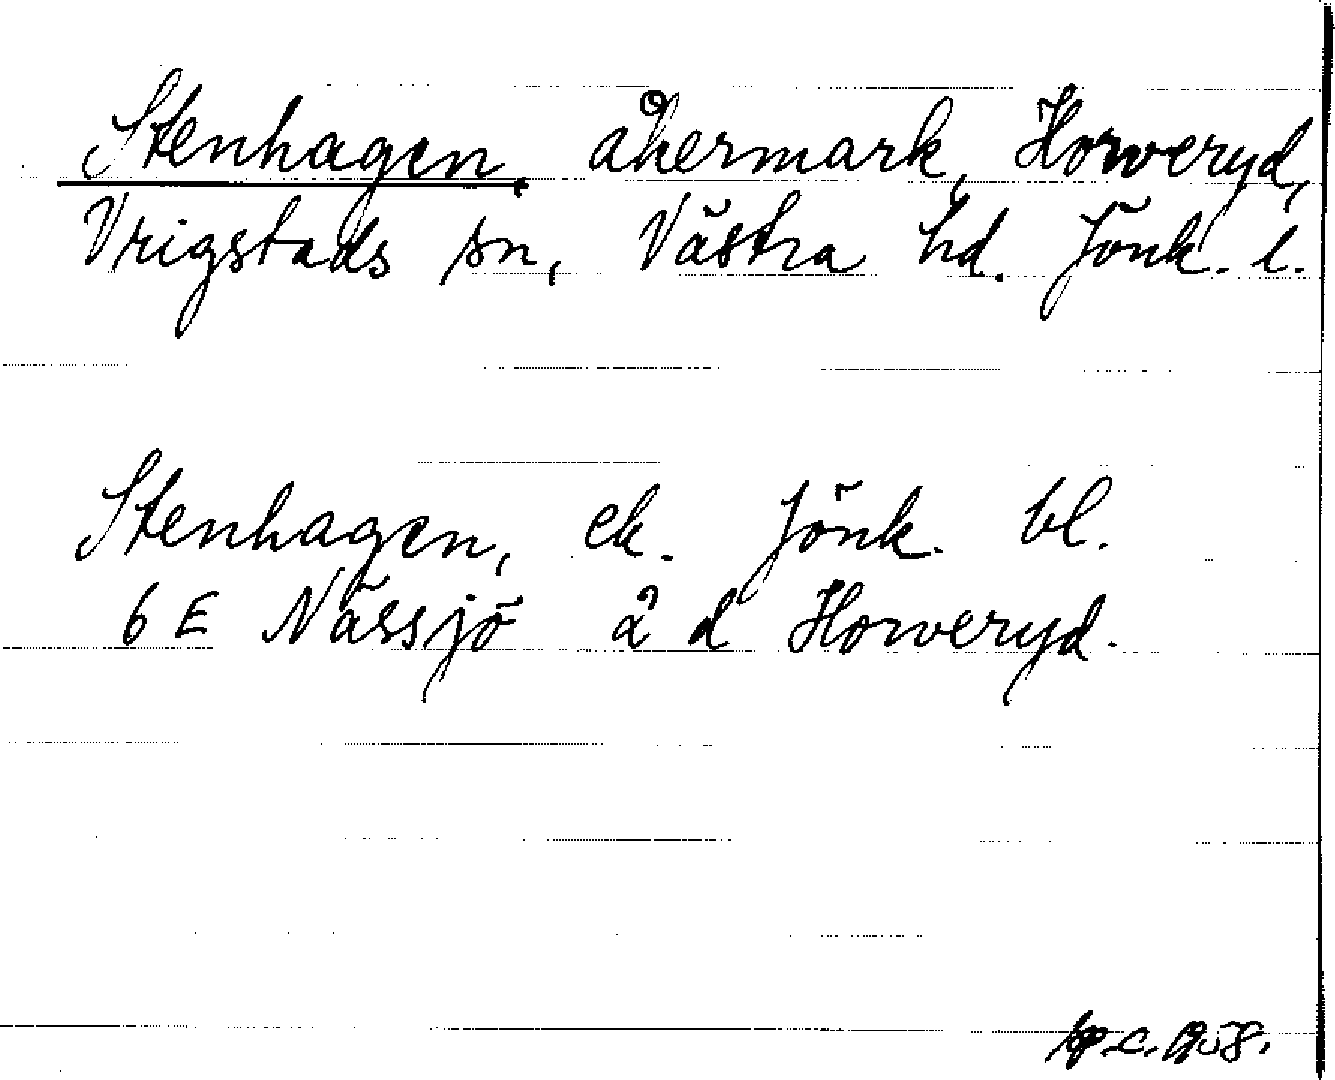 Stenhagen, åkermark, Horveryd,
Vrigstads sn, Västra hd. Jönk. l.
Stenhagen, ek. Jönk. bl.
6 E Nässjö 2 d Horveryd.